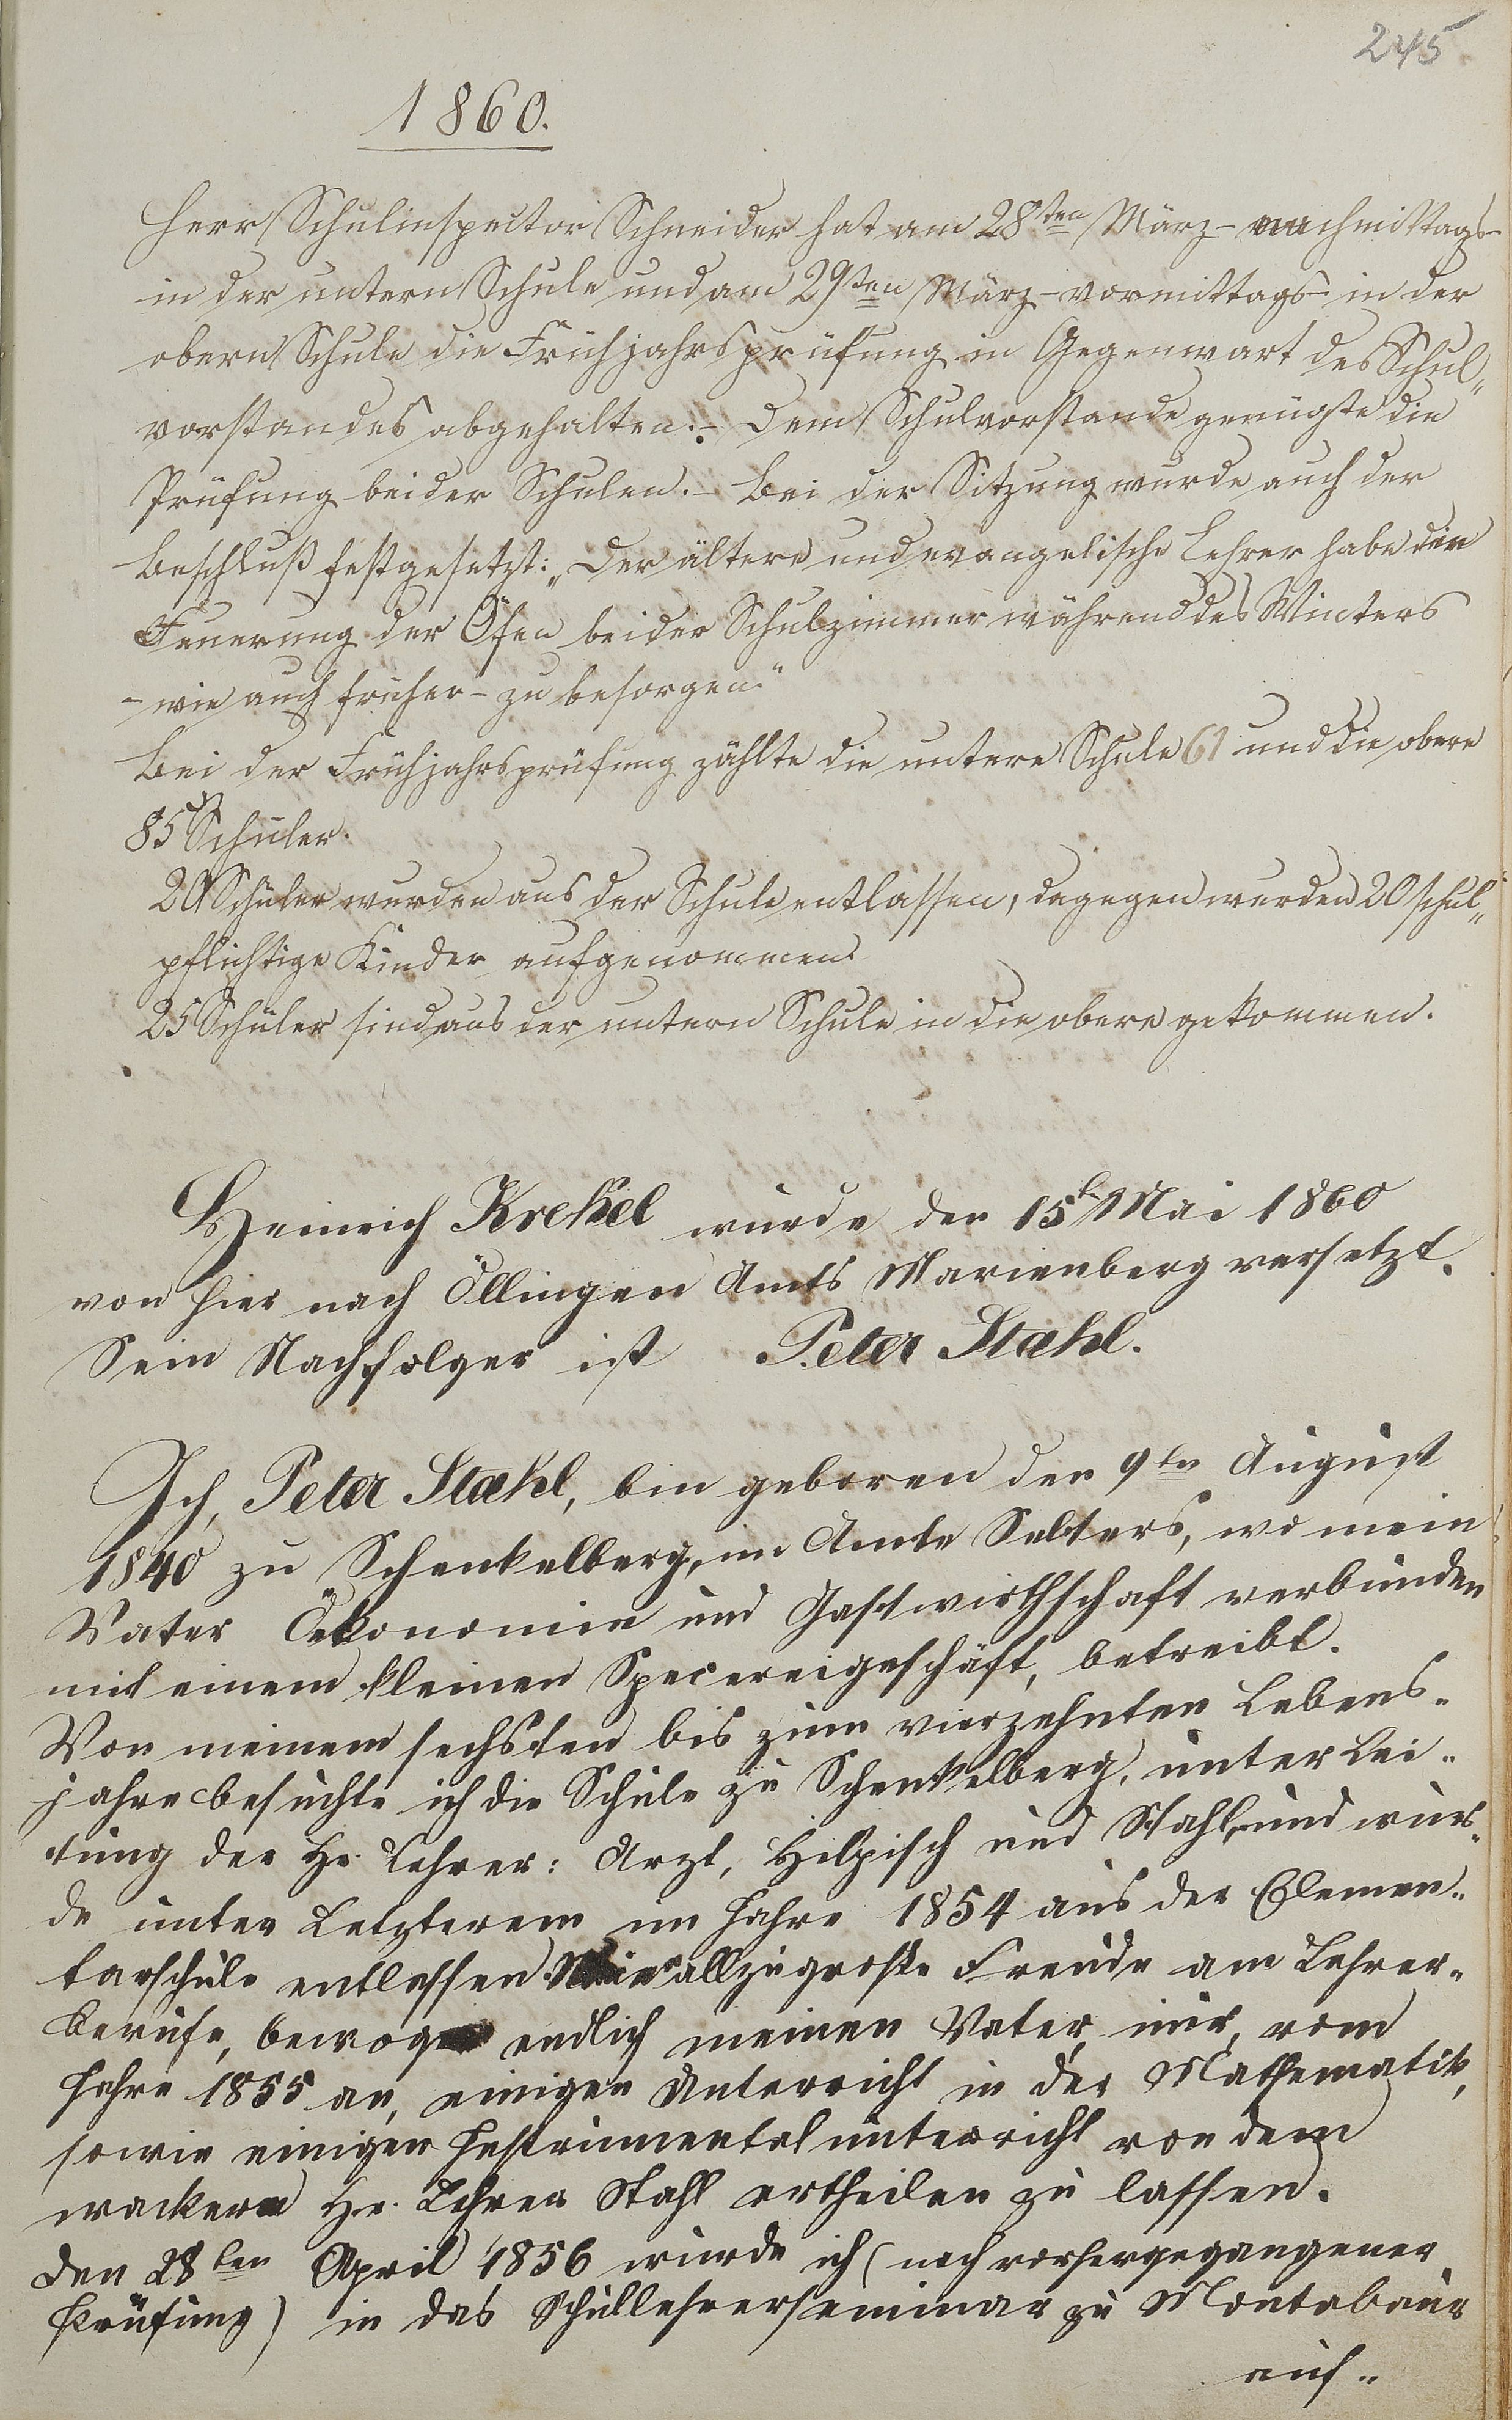 245
1860.
Herr Schulinspector Schneider hat am 28ten März - nachmittags -
in der untern Schule und am 29ten März - vormittags - in der
obern Schule die Frühjahrsprüfung in Gegenwart des Schul„
vorstandes abgehalten. - Dem Schulvorstande genügte die
Prüfung beider Schulen. - Bei der Sitzung wurde auch der
Beschluß festgesetzt: „Der ältere und evangelische Lehrer habe die
Feuerung der Öfen beider Schulzimmer während des Winters
- wie auch früher - zu besorgen."
Bei der Frühjahrsprüfung zählte die untere Schule 61 und die obere
85 Schüler.
20 Schüler wurden aus der Schule entlassen, dagegen wurden 20 schul„
pflichtige Kinder aufgenommen.
25 Schüler sind aus der untern Schule in die obere gekommen.
Heinrich Krekel wurde den 15t Mai 1860
von hier nach Öllingen Amts Marienberg versetzt.
Sein Nachfolger ist Peter Stahl.
Ich, Peter Stahl, bin geboren den 9ten August
1840 zu Schenkelberg, im Amte Selters, wo mein
Vater Ökonomie und Gastwirthschaft verbunden
mit einem kleinen Specereigeschäft, betreibt.
Von meinem sechsten bis zum vierzehnten Lebens-
jahre besuchte ich die Schule zu Schenkelberg, unter Lei-
tung der Hr. Lehrer: Arzt, Hilpisch und Stahl, und wur-
de unter Letzterem im Jahre 1854 aus der Elemen-
tarschule entlassen. Meine allzugroße Freude am Lehrer-
berufe, bewog endlich meinen Vater, mir, vom
Jahre 1855 an, einigen Unterricht in der Mathematik,
sowie einigen Instrumentalunterricht von dem
wackern Hr. Lehrer Stahl ertheilen zu lassen.
Den 28ten April 1856 wurde ich (nach vorhergegangener
Prüfung) in das Schullehrerseminar zu Montabaur
auf-